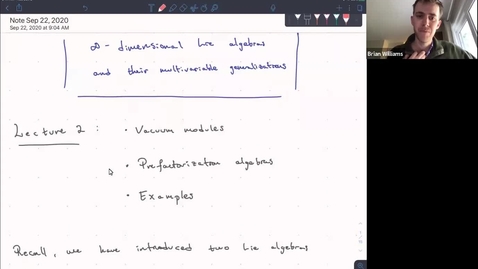 Note Sep 22, 2020
Sep 22, 2020 at 9:04 AM
∞ - dimensional Lie algebras
and their multivariable generalizations
Lecture 2 :
• Vacuum modules
• Prefactorization algebras
• Examples
Recall, we have introduced two Lie algebras
Brian Williams